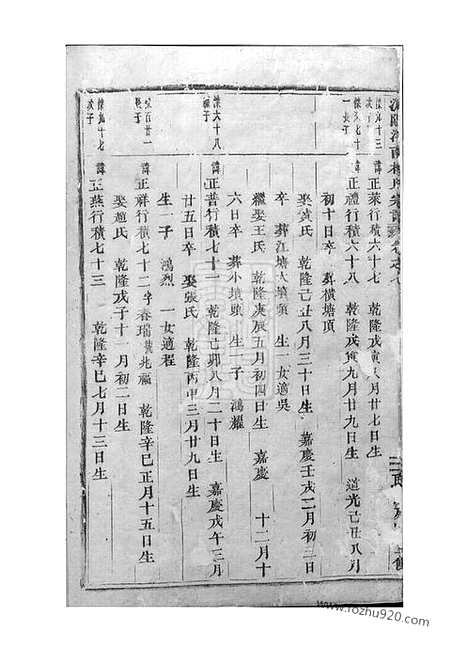 諱正菜行積六十七 乾隆戊寅八月廿七日生
諱正禮行積六十八 乾隆戊寅九月廿九日生 道光己丑八月
初十日卒 葬橫塘頂
娶黃氏 乾隆己丑八月三十日生 嘉慶壬戌二月初二日
卒 葬江塘大墳頭 生一女適吳
繼娶王氏 乾隆庚辰五月初四日生 嘉慶 十二月十
六日卒 葬小墳頭 生一子 鴻耀
諱正普行積七十一 乾隆己卯八月二十日生 嘉慶戊午三月
廿五日卒 娶張氏 乾隆丙申三月廿九日生
生一子 鴻烈 一女適程
諱正祥行積七十二字春瑞號兆福 乾隆辛巳正月十五日生
娶趙氏 乾隆戊子十一月初二日生
諱正燕行積七十三 乾隆辛巳七月十三日生
www.rozhu920.com